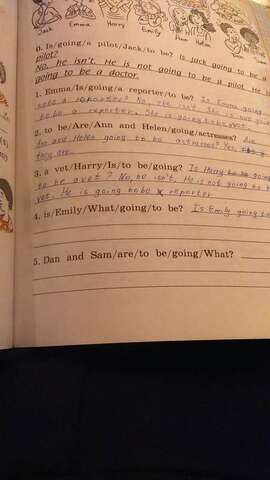 Jack
Emma
Harry
Emily
Ann Helen
Dan Sam
0. Is/going/a pilot/Jack/to be? Is Jack going to be a
pilot?
No, he isn't. He is not going to be a pilot. He is
going to be a doctor.
1. Emma/Is/going/a reporter/to be? Is Emma going
to be a reporter? No, she isn't. She is not going
to be a reporter. She is going to be vet.
2. to be/Are/Ann and Helen/going/actresses? Are
and Helen going to be actresses? Yes,
they are.
3. a vet/Harry/Is/to be/going? Is Harry going
to be a vet? No, he isn't. He is not going to be
vet. He is going to be reporter
4. is/Emily/What/going/to be? Is Emily going to
5. Dan and Sam/are/to be/going/What?